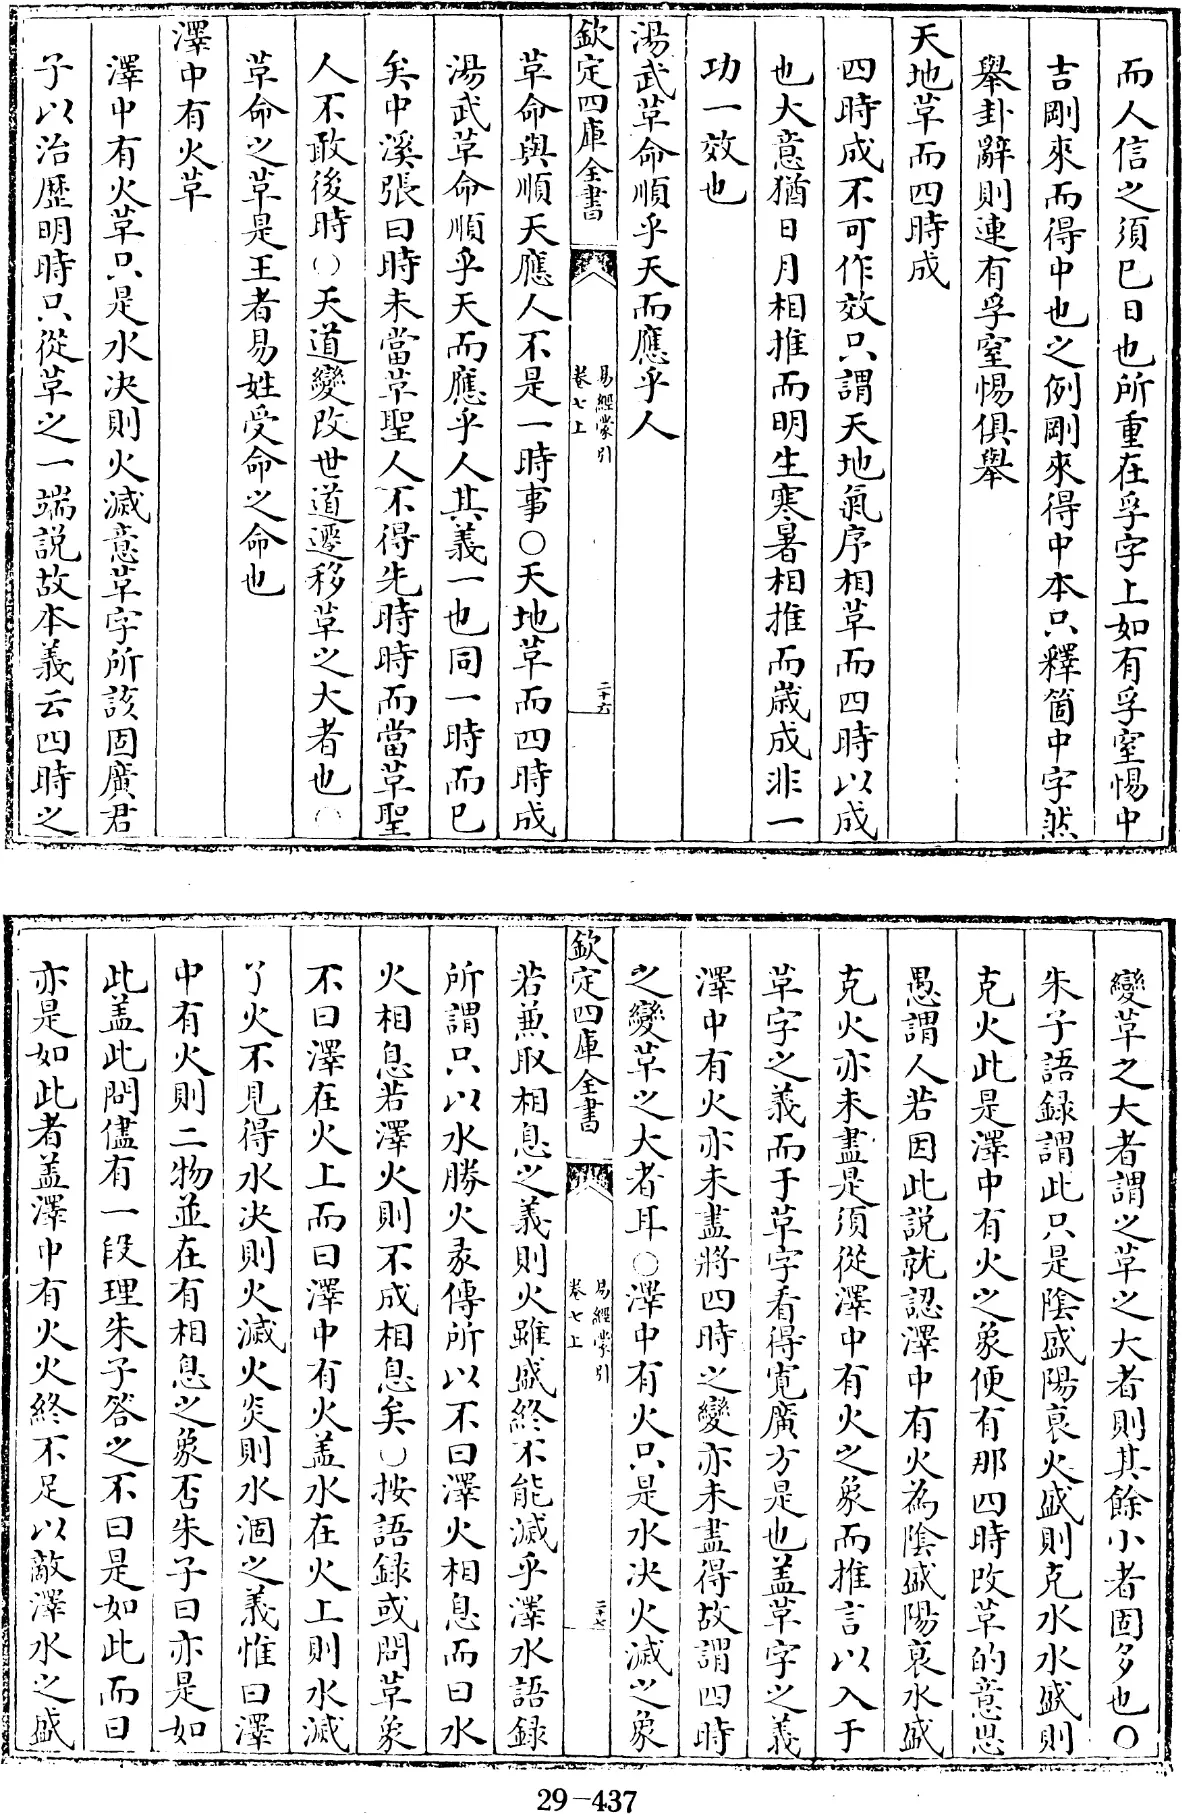 而人信之須已日也所重在孚字上如有孚窒惕中
吉剛來而得中也之例剛來得中本只釋箇中字然
舉卦辭則連有孚窒惕俱舉
天地革而四時成
四時成不可作效只謂天地氣序相革而四時以成
也大意猶日月相推而明生寒暑相推而歲成非一
功一效也
湯武革命順乎天而應乎人
欽定四庫全書
易經蒙引
卷七上
二十六
革命與順天應人不是一時事○天地革而四時成
湯武革命順乎天而應乎人其義一也同一時而已
矣中溪張曰時未當革聖人不得先時時而當革聖
人不敢後時○天道變改世道遷移革之大者也○
革命之革是王者易姓受命之命也
澤中有火革
澤中有火革只是水決則火滅意革字所該固廣君
子以治歷明時只從革之一端説故本義云四時之
變革之大者謂之革之大者則其餘小者固多也○
朱子語録謂此只是陰盛陽衰火盛則克水水盛則
克火此是澤中有火之象便有那四時改革的意思
愚謂人若因此説就認澤中有火為陰盛陽衰水盛
克火亦未盡是須從澤中有火之象而推言以入于
革字之義而于革字看得寛廣方是也盖革字之義
澤中有火亦未盡將四時之變亦未盡得故謂四時
之變革之大者耳○澤中有火只是水決火滅之象
欽定四庫全書
易經蒙引
卷七上
二十七
若兼取相息之義則火雖盛終不能滅乎澤水語録
所謂只以水勝火彖傳所以不曰澤火相息而曰水
火相息若澤火則不成相息矣○按語録或問革象
不曰澤在火上而曰澤中有火盖水在火上則水滅
了火不見得水決則火滅火炎則水涸之義惟曰澤
中有火則二物並在有相息之象否朱子曰亦是如
此盖此問儘有一段理朱子答之不曰是如此而曰
亦是如此者盖澤中有火火終不足以敵澤水之盛
29-437